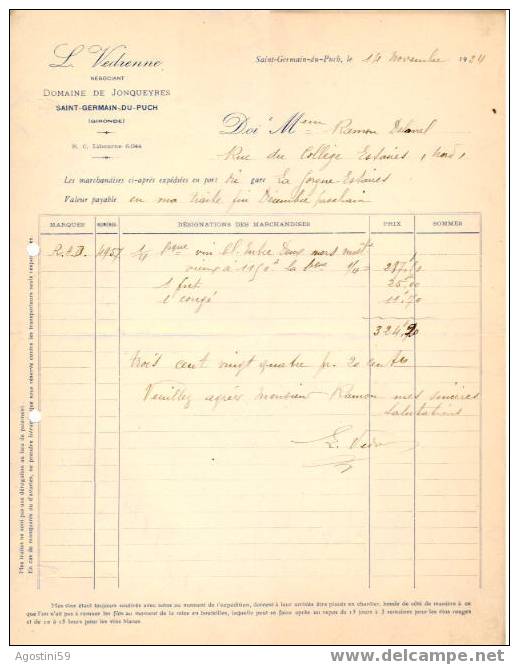 L. Vedrenne
NÉGOCIANT
DOMAINE DE JONQUEYRES
SAINT-GERMAIN-DU-PUCH
(GIRONDE)
R. C. Libourne 6.044
Saint-Germain-du-Puch, le 14 novembre 1924
Doit Mr Ramon
Rue du Collège Estaires (Nord)
Les marchandises ci-après expédiées en port dû gare La Gorgue Estaires
Valeur payable en ma traite fin Décembre prochain
MARQUES NUMÉROS DÉSIGNATIONS DES MARCHANDISES PRIX SOMMES
R.D. 4957 1/4 Bque vin Bl. Entre Deux mers
vieux à 1150 f la bque 1/4 = 287.50
1 fût 25.00
1 congé 11.70
324.20
trois cent vingt quatre fr. 20 centes
Veuillez agréer Monsieur Ramon mes sincères
salutations
L. Vedr
Mes traites ne sont pas une dérogation au lieu de paiement.
En cas de manquants ou d'avaries, ne prendre livraison que sous réserve contre les transporteurs seuls responsables.
Mes vins étant toujours soutirés avec soins au moment de l'expédition, doivent à leur arrivée être placés en chantier, bonde de côté de manière à ce
que l'on n'ait pas à remuer les fûts au moment de la mise en bouteilles, laquelle peut se faire après un repos de 15 jours à 3 semaines pour les vins rouges
et de 10 à 15 jours pour les vins blancs.
Agostini59
www.delcampe.net